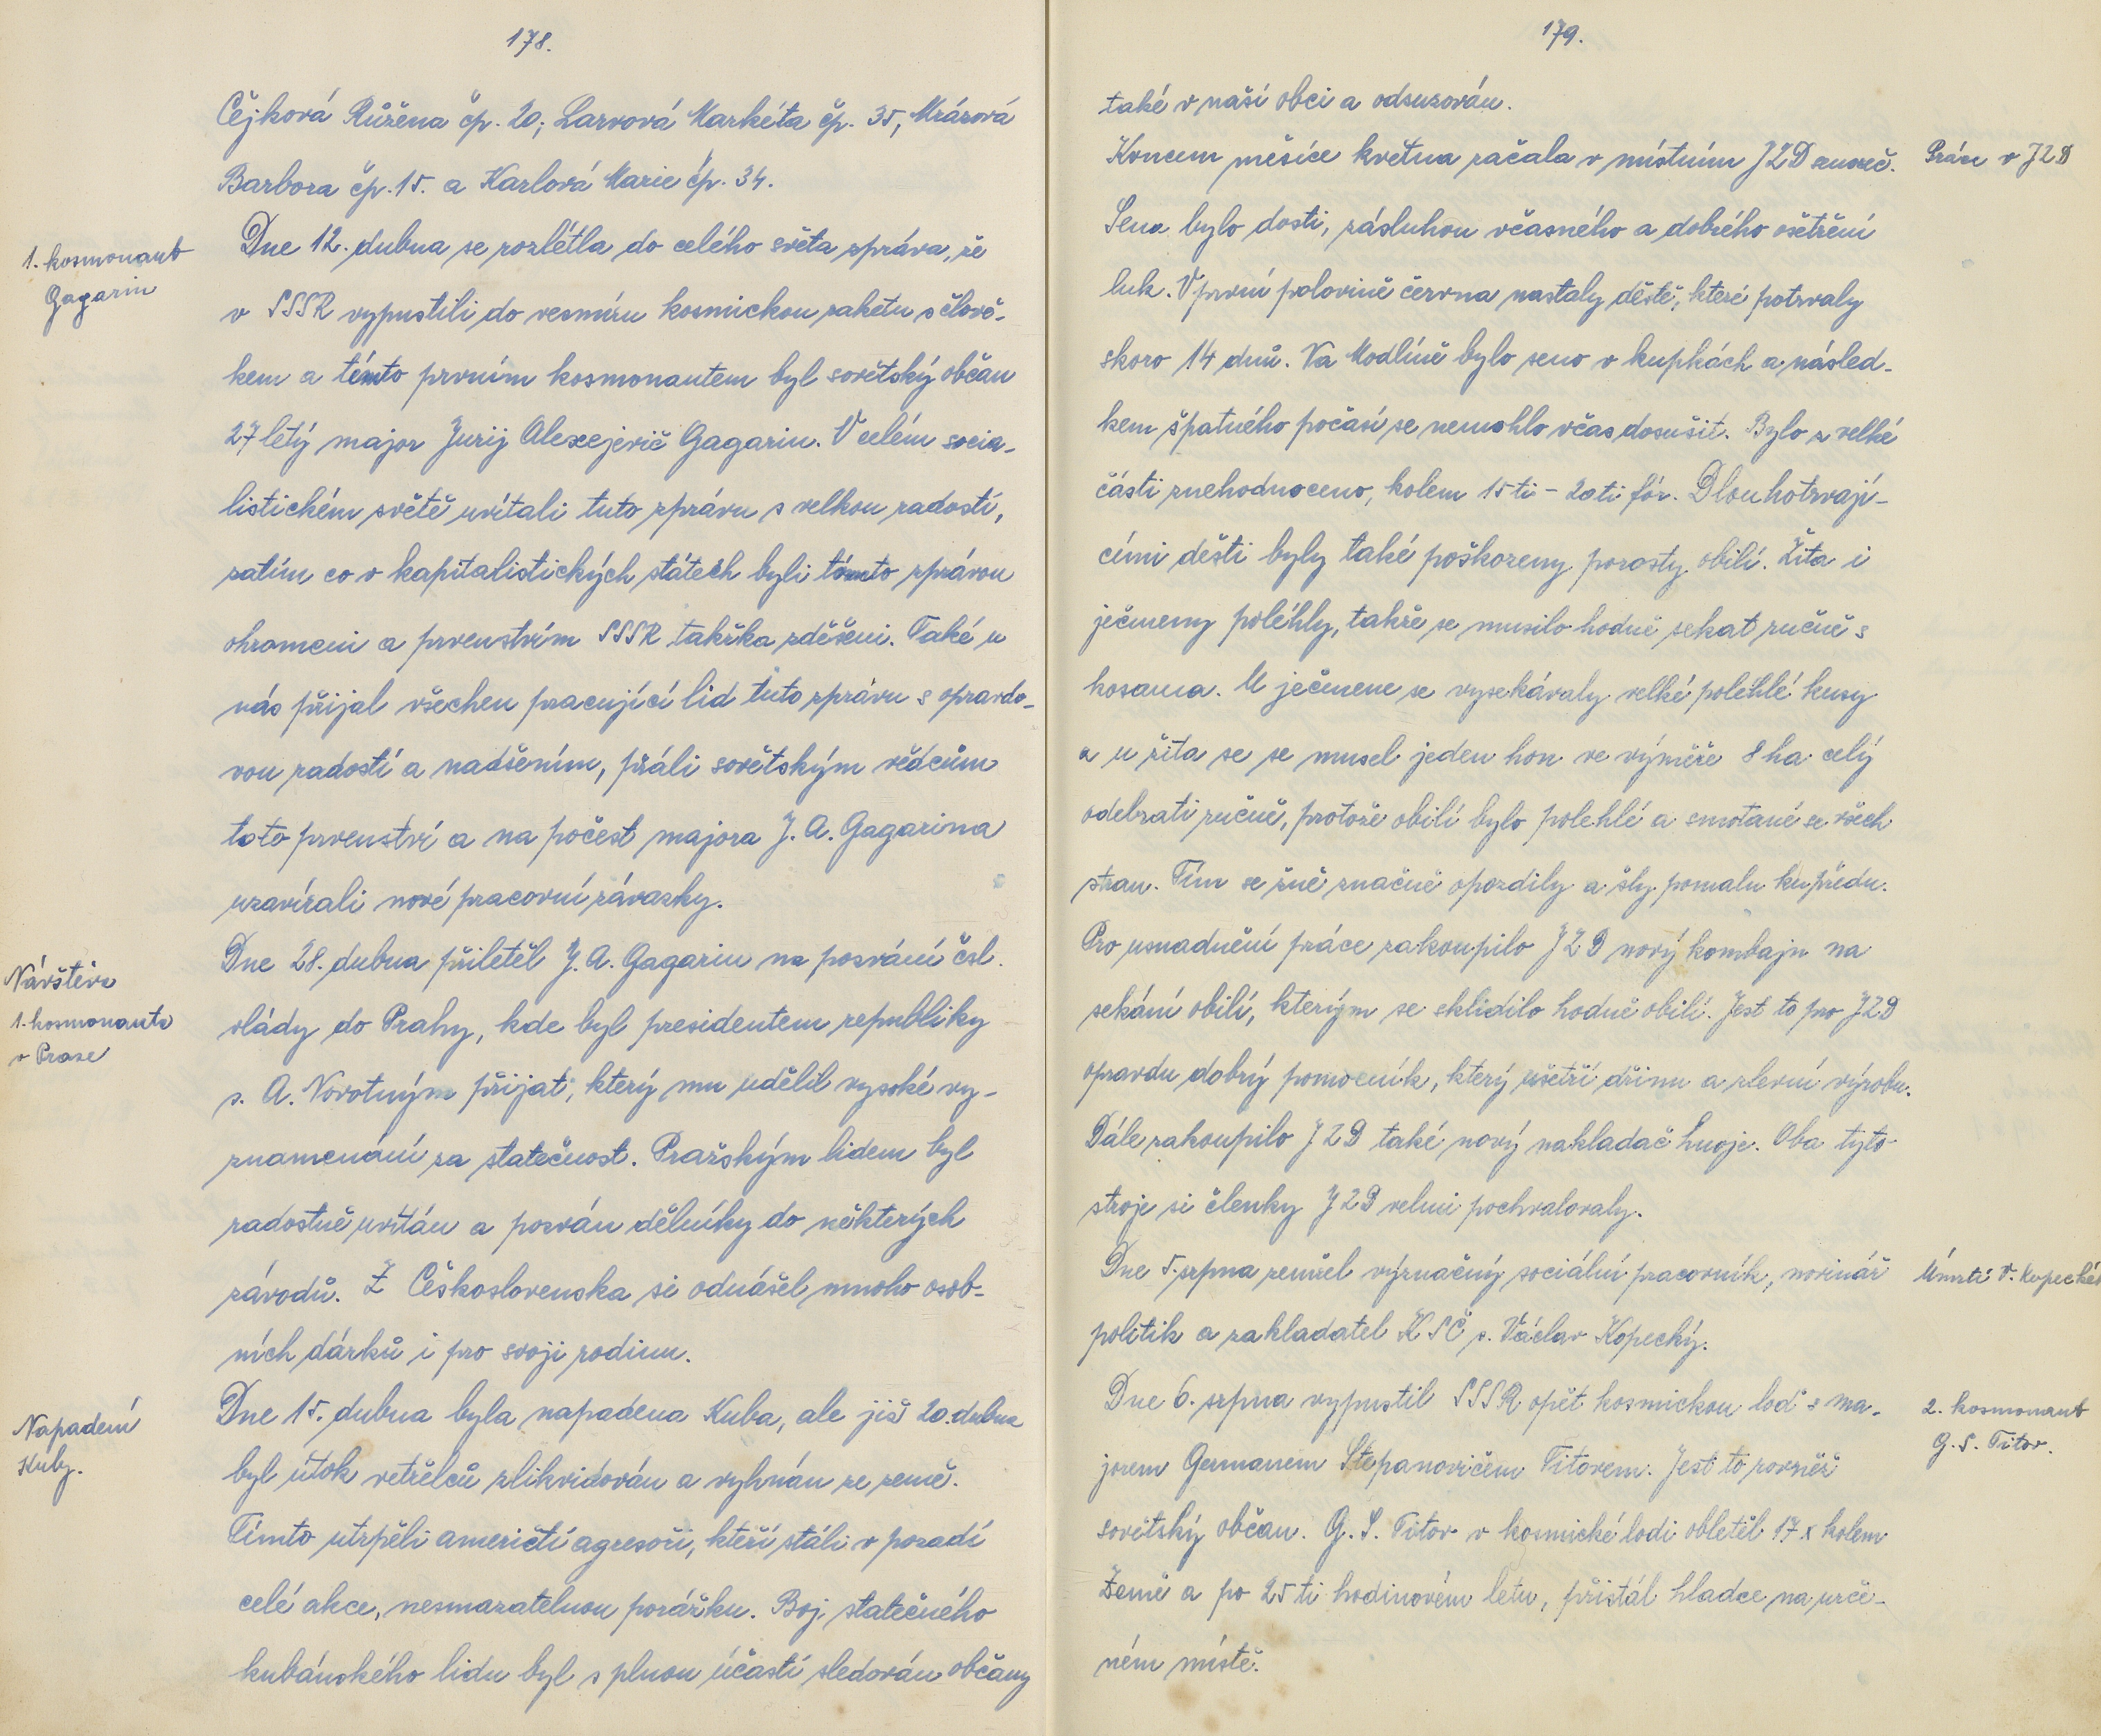 178.
Čejková Růžena čp. 20; Larvová Markéta čp. 35, Mrázová
Barbora čp. 15. a Karlová Marie čp. 34.
1. kosmonaut
Gagarin
Dne 12. dubna se rozlétla do celého světa zpráva, že
v SSSR vypustili do vesmíru kosmickou raketu s člově-
kem a tímto prvním kosmonautem byl sovětský občan
27 letý major Jurij Alexejevič Gagarin. V celém socia-
listickém světě uvítali tuto zprávu s velkou radostí,
zatím co v kapitalistických státech byli touto zprávou
ohromeni a prvenstvím SSSR takřka zděšeni. Také u
nás přijal všechen pracující lid tuto zprávu s opravdo-
vou radostí a nadšením, přáli sovětským vědcům
toto prvenství a na počest majora J. A. Gagarina
uzavírali nové pracovní závazky.
Návštěva
1. kosmonauta
v Praze
Dne 28. dubna přiletěl J. A. Gagarin na pozvání čsl.
vlády do Prahy, kde byl presidentem republiky
s. A. Novotným přijat, který mu udělil vysoké vy-
znamenání za statečnost. Pražským lidem byl
radostně uvítán a pozván dělníky do některých
závodů. Z Československa si odnášel mnoho osob-
ních dárků i pro svoji rodinu.
Napadení
Kuby.
Dne 15. dubna byla napadena Kuba, ale již 20. dubna
byl útok vetřelců zlikvidován a vyhnán ze země.
Tímto utrpěli američtí agresoři, kteří stáli v pozadí
celé akce, nesmazatelnou porážku. Boj statečného
kubánského lidu byl s plnou účastí sledován občany
179.
také v naší obci a odsuzován.
Koncem měsíce května začala v místním JZD senoseč.
Práce v JZD
Sena bylo dosti, zásluhou včasného a dobrého ošetření
luk. V první polovině června nastaly deště, které potrvaly
skoro 14 dnů. Na Modlíně bylo seno v kupkách a násled-
kem špatného počasí se nemohlo včas dosušit. Bylo z velké
části znehodnoceno, kolem 15 ti - 20 ti fůr. Dlouhotrvají-
cími dešti byly také poškozeny porosty obilí. Žita i
ječmeny polehly, takže se musilo hodně sekat ručně s
kosama. U ječmene se vysekávaly velké polehlé kusy
a u žita se se musel jeden hon ve výměře 8 ha celý
odebrati ručně, protože obilí bylo polehlé a smotané se všech
stran. Tím se žně značně opozdily a šly pomalu ku předu.
Pro usnadnění práce zakoupilo JZD nový kombajn na
sekání obilí, kterým se sklidilo hodně obilí. Jest to pro JZD
opravdu dobrý pomocník, který ušetří dřinu a zlevní výrobu.
Dále zakoupilo JZD také nový nakladač hnoje. Oba tyto
stroje si členky JZD velmi pochvalovaly.
Dne 5. srpna zemřel význačný sociální pracovník, novinář
Úmrtí V. Kopeckého
politik a zakladatel KSČ s. Václav Kopecký.
Dne 6. srpna vypustil SSSR opět kosmickou loď s ma-
2. kosmonaut
G. S. Titov.
jorem Germanem Stepanovičem Titovem. Jest to rovněž
sovětský občan. G. S. Titov v kosmické lodi obletěl 17 x kolem
Země a po 25 ti hodinovém letu, přistál hladce na urče-
ném místě.